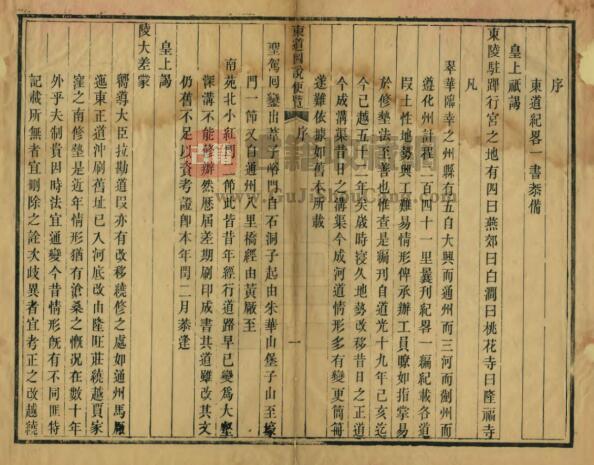 序
東道紀畧一書恭備
皇上祇謁
東陵駐蹕行宮之地有四曰燕郊曰白澗曰桃花寺曰隆福寺
凡
翠華臨幸之州縣有五自大興而通州而三河而薊州而
遵化州計程二百四十一里曩刊紀畧一編紀載各道
叚土性地勢興工難易情形俾承辦工員瞭如指掌易
於修墊法至善也惟查是編刊自道光十九年己亥迄
今已越五十一年矣歲時寖久地勢改移昔日之正道
今成溝渠昔日之溝渠今成河道情形多有變更簡冊
遂難依據如舊本所載
東道圖說便覽
序
一
聖駕囘鑾出葦子峪門自石洞子起由朱華山堡子山至壕
門一節又自通州八里橋經由黃厰至
南苑北小紅門一節此皆昔年經行道路早已變爲大壑
深溝不能修辦然歷屆差期刷印成書其道雖改其文
仍舊不足以資考證卽本年閏二月恭逢
皇上謁
陵大差蒙
嚮導大臣拉勘道叚亦有改移繞修之處如通州馬厰
迤東正道沖刷舊址已入河底改由隆旺莊繞越賈家
窪之南修墊是近年情形猶有滄桑之慨況在數十年
外乎夫制貴因時法宜通變今昔情形旣有不同則特
記載所無者宜刪除之詮次歧異者宜考正之改越繞
古籍
www.GuJiShuCang.com